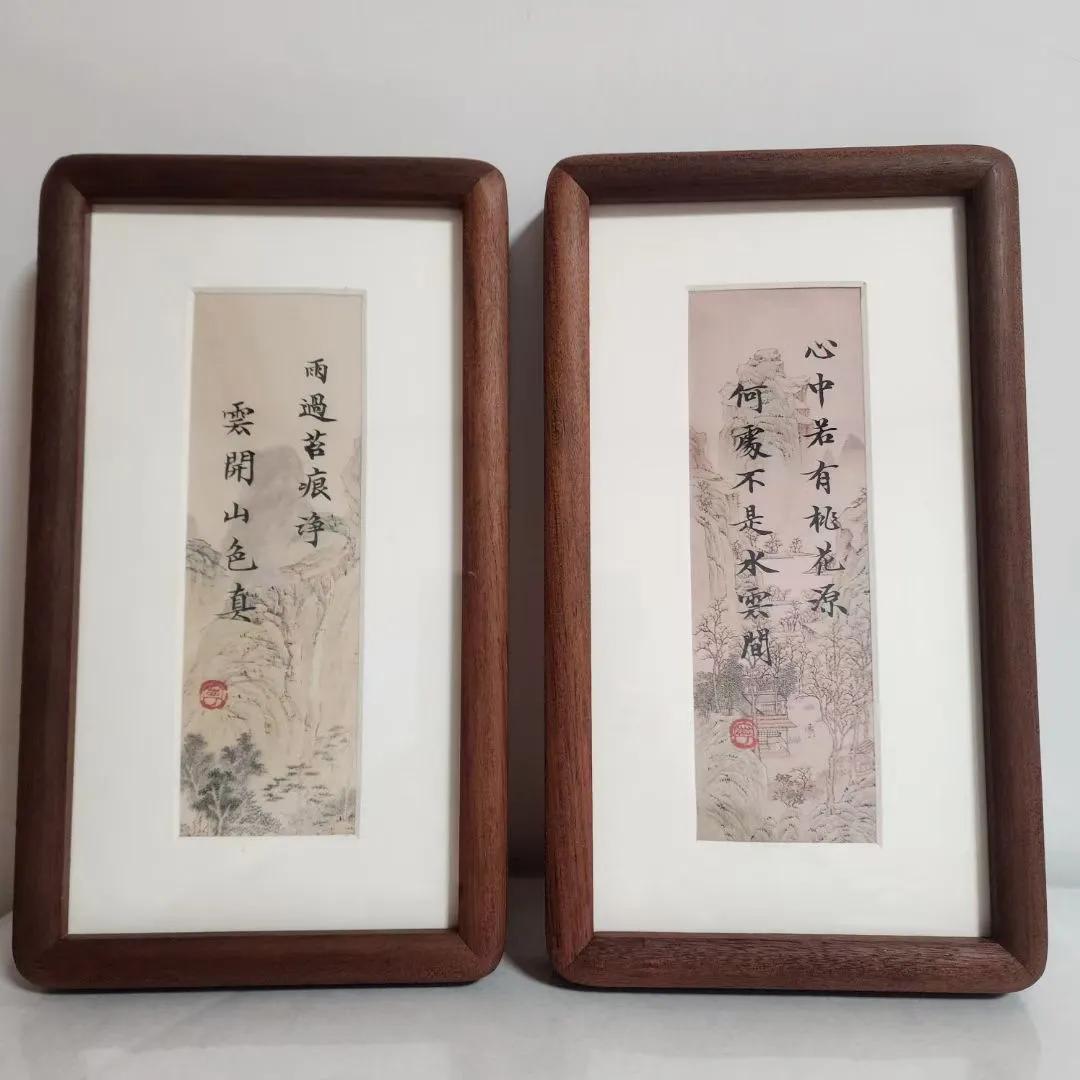 雨過苔痕淨
雲開山色真
心中若有桃花源
何處不是水雲間